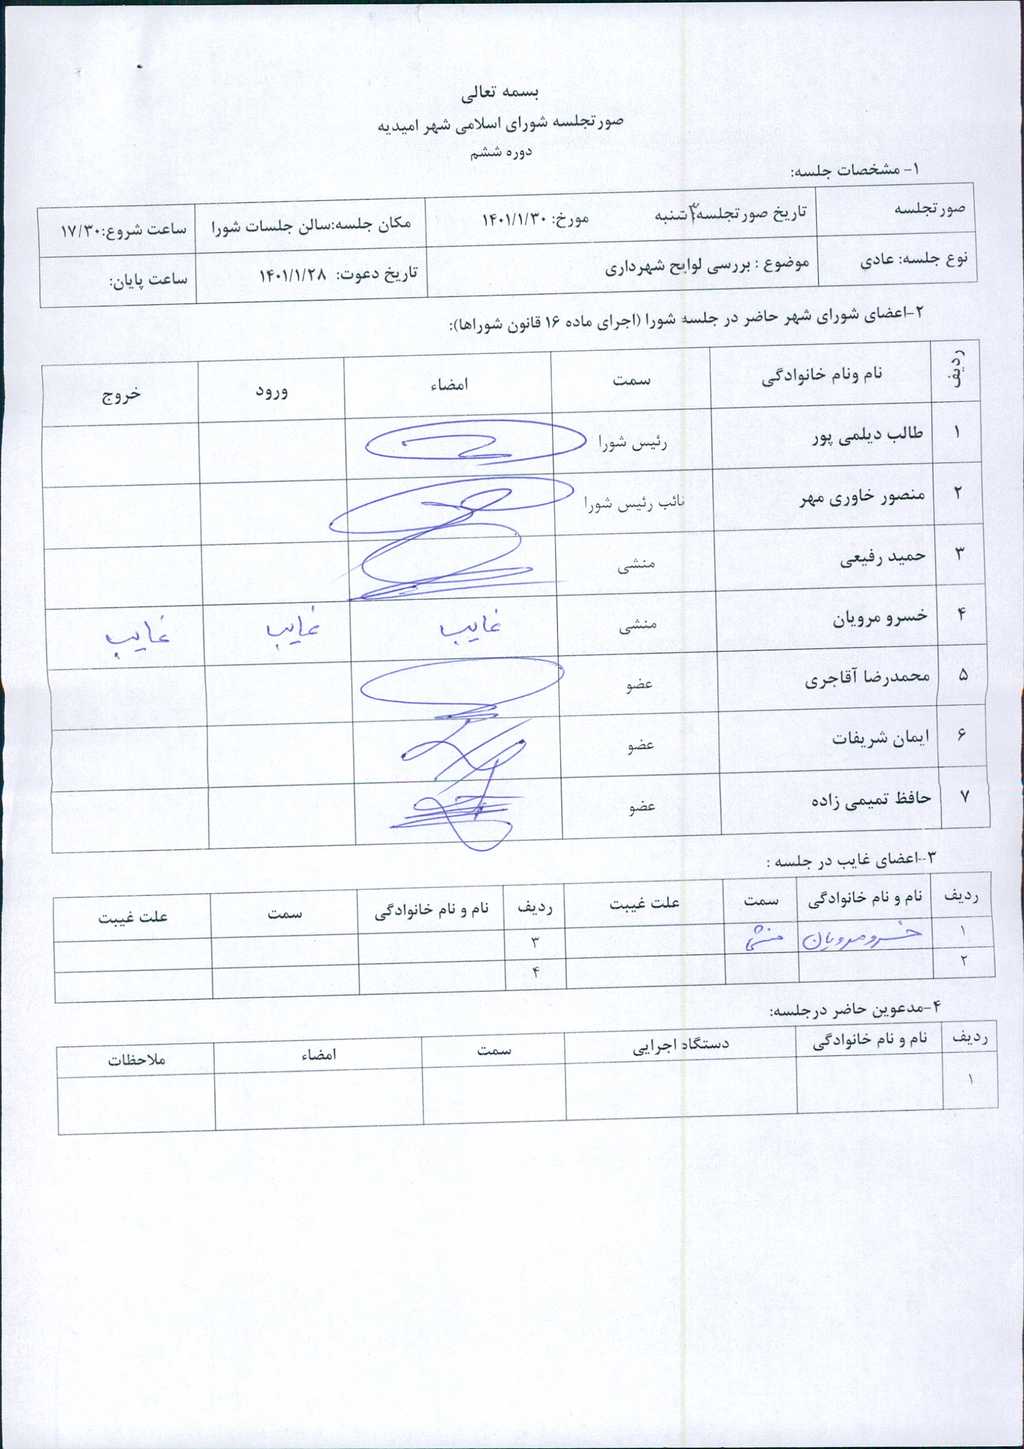 بسمه تعالی
صورتجلسه شورای اسلامی شهر امیدیه
دوره ششم
۱- مشخصات جلسه:
صورتجلسه تاریخ صورتجلسه شنبه مورخ: ۱۴۰۱/۱/۳۰ مکان جلسه:سالن جلسات شورا ساعت شروع:۱۷/۳۰
نوع جلسه: عادی موضوع : بررسی لوایح شهرداری تاریخ دعوت: ۱۴۰۱/۱/۲۸ ساعت پایان:
۲-اعضای شورای شهر حاضر در جلسه شورا (اجرای ماده ۱۶ قانون شوراها):
ردیف نام ونام خانوادگی سمت امضاء ورود خروج
۱ طالب دیلمی پور رئیس شورا
۲ منصور خاوری مهر نائب رئیس شورا
۳ حمید رفیعی منشی
۴ خسرو مرویان منشی غایب غایب غایب
۵ محمدرضا آقاجری عضو
۶ ایمان شریفات عضو
۷ حافظ تمیمی زاده عضو
۳-اعضای غایب در جلسه :
ردیف نام و نام خانوادگی سمت علت غیبت ردیف نام و نام خانوادگی سمت علت غیبت
۱ خسرو مرویان منشی ۳
۲ ۴
۴-مدعوین حاضر درجلسه:
ردیف نام و نام خانوادگی دستگاه اجرایی سمت امضاء ملاحظات
۱